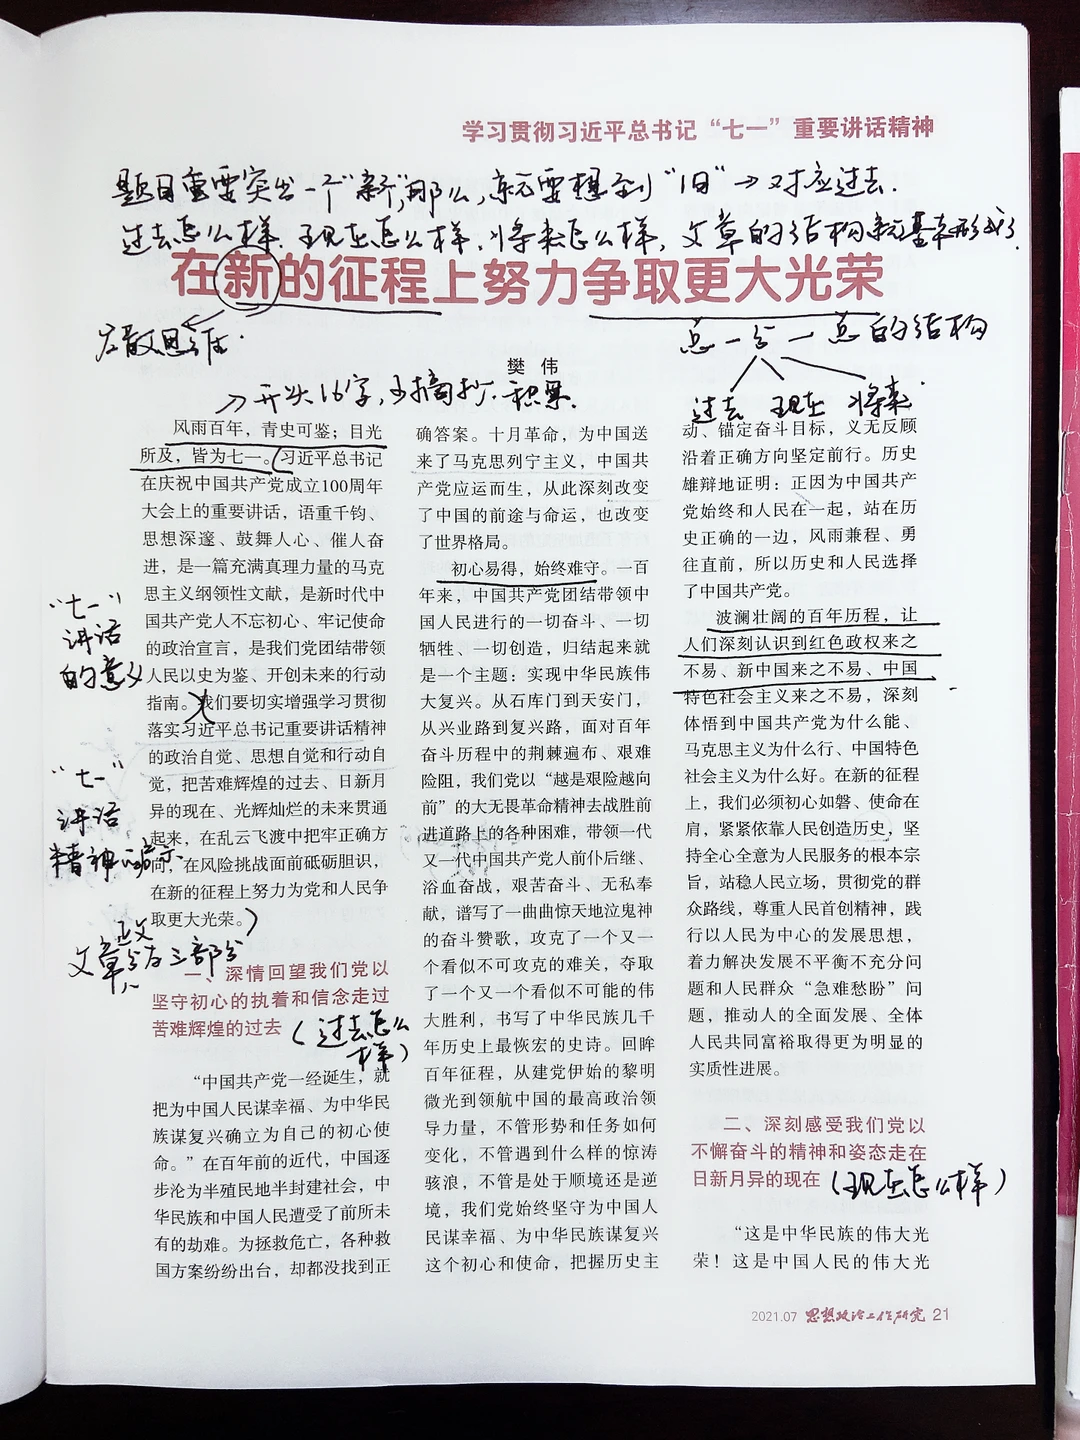 学习贯彻习近平总书记“七一”重要讲话精神
题目重要突出一个“新”，那么，就要想到“旧”→对应过去．
过去怎么样．现在怎么样，将来怎么样，文章的结构就基本形成了．
在新的征程上努力争取更大光荣
发散思维．
总—分—总的结构
过去 现在 将来
樊 伟
→开头16字，可摘抄、积累．
风雨百年，青史可鉴；目光
所及，皆为七一。习近平总书记
在庆祝中国共产党成立100周年
大会上的重要讲话，语重千钧、
思想深邃、鼓舞人心、催人奋
进，是一篇充满真理力量的马克
思主义纲领性文献，是新时代中
国共产党人不忘初心、牢记使命
的政治宣言，是我们党团结带领
人民以史为鉴、开创未来的行动
指南。我们要切实增强学习贯彻
落实习近平总书记重要讲话精神
的政治自觉、思想自觉和行动自
觉，把苦难辉煌的过去、日新月
异的现在、光辉灿烂的未来贯通
起来，在乱云飞渡中把牢正确方
向，在风险挑战面前砥砺胆识，
在新的征程上努力为党和人民争
取更大光荣。
“七一”
讲话
的意义
“七一”
讲话
精神启示
正文
文章分为三部分
一、深情回望我们党以
坚守初心的执着和信念走过
苦难辉煌的过去
（过去怎么
样）
“中国共产党一经诞生，就
把为中国人民谋幸福、为中华民
族谋复兴确立为自己的初心使
命。”在百年前的近代，中国逐
步沦为半殖民地半封建社会，中
华民族和中国人民遭受了前所未
有的劫难。为拯救危亡，各种救
国方案纷纷出台，却都没找到正
确答案。十月革命，为中国送
来了马克思列宁主义，中国共
产党应运而生，从此深刻改变
了中国的前途与命运，也改变
了世界格局。
初心易得，始终难守。一百
年来，中国共产党团结带领中
国人民进行的一切奋斗、一切
牺牲、一切创造，归结起来就
是一个主题：实现中华民族伟
大复兴。从石库门到天安门，
从兴业路到复兴路，面对百年
奋斗历程中的荆棘遍布、艰难
险阻，我们党以“越是艰险越向
前”的大无畏革命精神去战胜前
进道路上的各种困难，带领一代
又一代中国共产党人前仆后继、
浴血奋战，艰苦奋斗、无私奉
献，谱写了一曲曲惊天地泣鬼神
的奋斗赞歌，攻克了一个又一
个看似不可攻克的难关，夺取
了一个又一个看似不可能的伟
大胜利，书写了中华民族几千
年历史上最恢宏的史诗。回眸
百年征程，从建党伊始的黎明
微光到领航中国的最高政治领
导力量，不管形势和任务如何
变化，不管遇到什么样的惊涛
骇浪，不管是处于顺境还是逆
境，我们党始终坚守为中国人
民谋幸福、为中华民族谋复兴
这个初心和使命，把握历史主
动、锚定奋斗目标，义无反顾
沿着正确方向坚定前行。历史
雄辩地证明：正因为中国共产
党始终和人民在一起，站在历
史正确的一边，风雨兼程、勇
往直前，所以历史和人民选择
了中国共产党。
波澜壮阔的百年历程，让
人们深刻认识到红色政权来之
不易、新中国来之不易、中国
特色社会主义来之不易，深刻
体悟到中国共产党为什么能、
马克思主义为什么行、中国特色
社会主义为什么好。在新的征程
上，我们必须初心如磐、使命在
肩，紧紧依靠人民创造历史，坚
持全心全意为人民服务的根本宗
旨，站稳人民立场，贯彻党的群
众路线，尊重人民首创精神，践
行以人民为中心的发展思想，
着力解决发展不平衡不充分问
题和人民群众“急难愁盼”问
题，推动人的全面发展、全体
人民共同富裕取得更为明显的
实质性进展。
二、深刻感受我们党以
不懈奋斗的精神和姿态走在
日新月异的现在（现在怎么样）
“这是中华民族的伟大光
荣！这是中国人民的伟大光
2021.07 思想政治工作研究 21